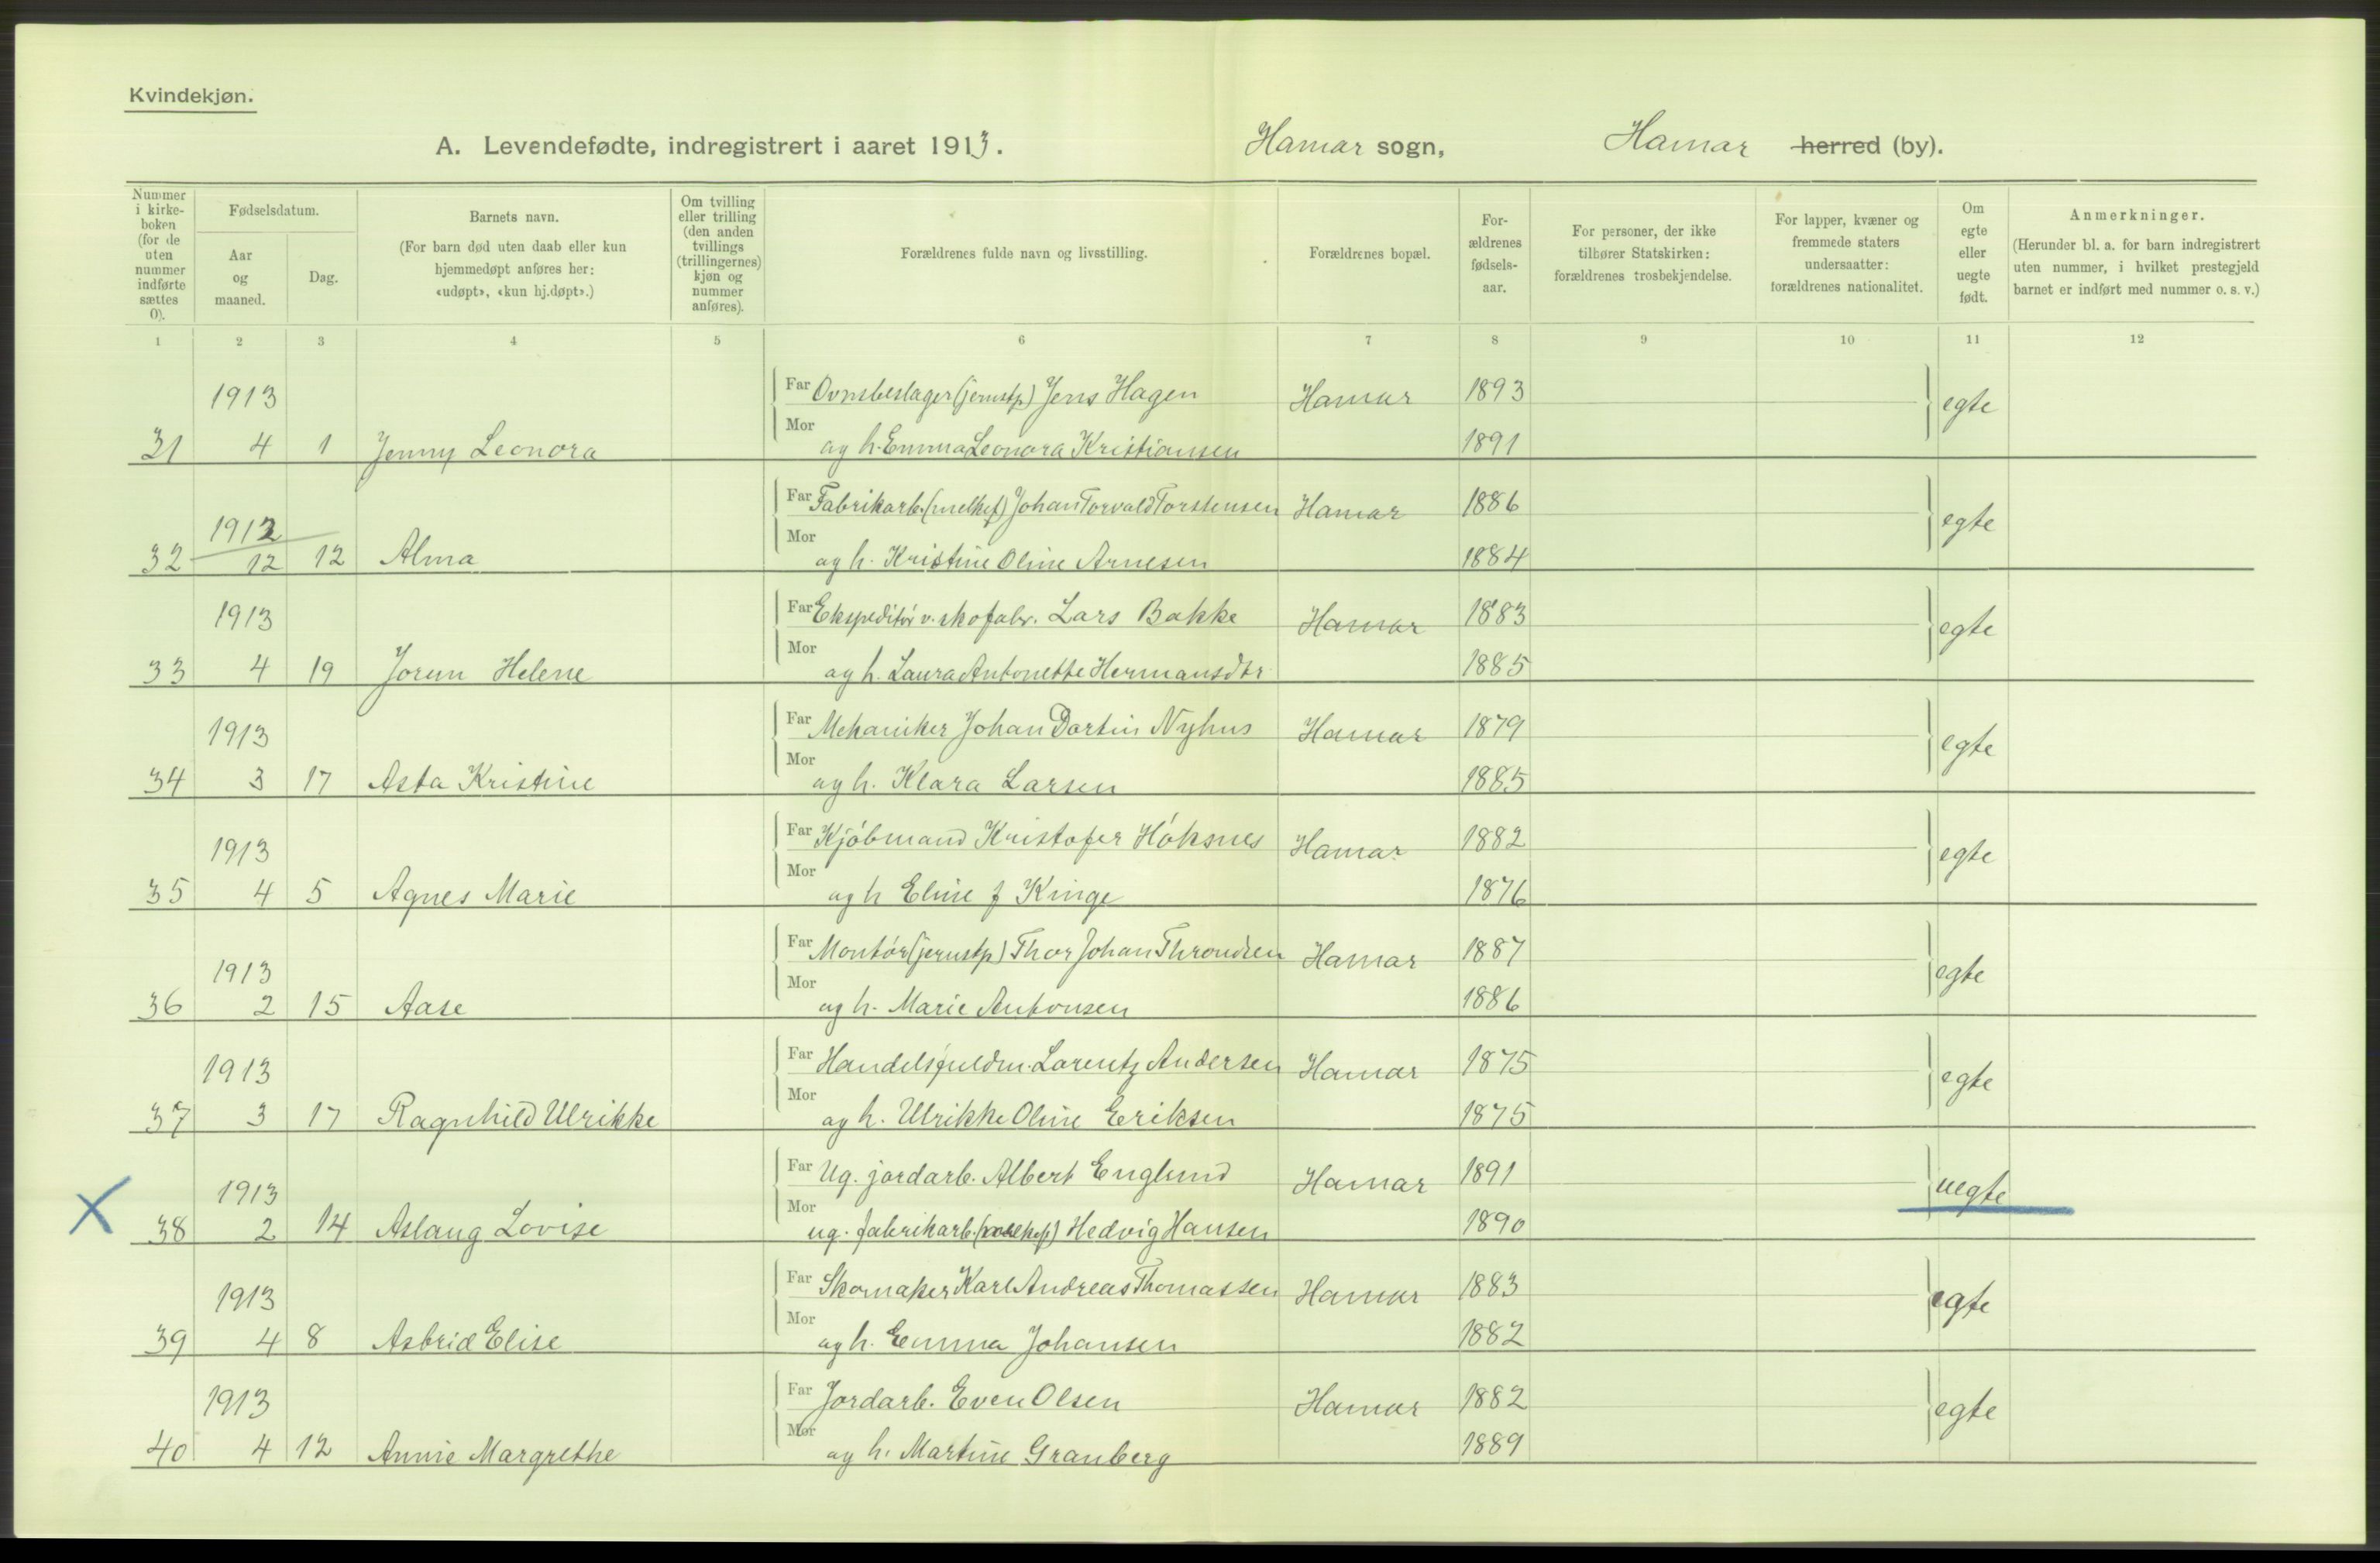 Kvindekjøn.
A. Levendefødte, indregistrert i aaret 1913. Hamar sogn, Hamar herred (by).
Nummer i kirke-boken (for de uten nummer indførte sættes 0).
Fødselsdatum.
Aar og maaned.
Dag.
Barnets navn.
(For barn død uten daab eller kun hjemmedøpt anføres her: «udøpt», «kun hj.døpt».)
Om tvilling eller trilling (den anden tvillings (trillingernes) kjøn og nummer anføres).
Forældrenes fulde navn og livsstilling.
Forældrenes bopæl.
For-ældrenes fødsels-aar.
For personer, der ikke tilhører Statskirken: forældrenes trosbekjendelse.
For lapper, kvæner og fremmede staters undersaatter: forældrenes nationalitet.
Om egte eller uegte født.
Anmerkninger.
(Herunder bl. a. for barn indregistrert uten nummer, i hvilket prestegjeld barnet er indført med nummer o. s. v.)
1 2 3 4 5 6 7 8 9 10 11 12
1913 Far Ovnsbeslager (jernstp) Jens Hagen Hamar 1893 egte
31 4 1 Jenny Leonora Mor og h. Emma Leonora Kristiansen 1891
1912 Far Fabrikarb. (melkef) Johan Torvald Torstensen Hamar 1886 egte
32 12 12 Alma Mor og h. Kristine Oline Arnesen 1884
1913 Far Ekspeditór v. skofabr. Lars Bakke Hamar 1883 egte
33 4 19 Jorun Helene Mor og h. Laura Antonette Hermansdtr 1885
1913 Far Mekaniker Johan Nyhus Hamar 1879 egte
34 3 17 Asta Kristine Mor og h. Klara Larsen 1885
1913 Far Kjóbmand Kristofer Hóksnes Hamar 1882 egte
35 4 5 Agnes Marie Mor og h Eline f Kinge 1876
1913 Far Montór (jernstp) Thor Johan Throndsen Hamar 1887 egte
36 2 15 Aase Mor og h. Marie Antonsen 1886
1913 Far Lorentz Andersen Hamar 1875 egte
37 3 17 Ragnhild Ulrikke Mor og h. Ulrikke Oline Eriksen 1875
1913 Far Ug. jordarb. Albert Englund Hamar 1891 uegte
X 38 2 14 Aslaug Lovise Mor ug. fabrikarb. (melkef) Hedvig Hansen 1890
1913 Far Skomaker Karl Andreas Thomassen Hamar 1883 egte
39 4 8 Astrid Elise Mor og h. Emma Johansen 1882
1913 Far Jordarb. Even Olsen Hamar 1882 egte
40 4 12 Annie Margrethe Mor og h. Martine Granberg 1889